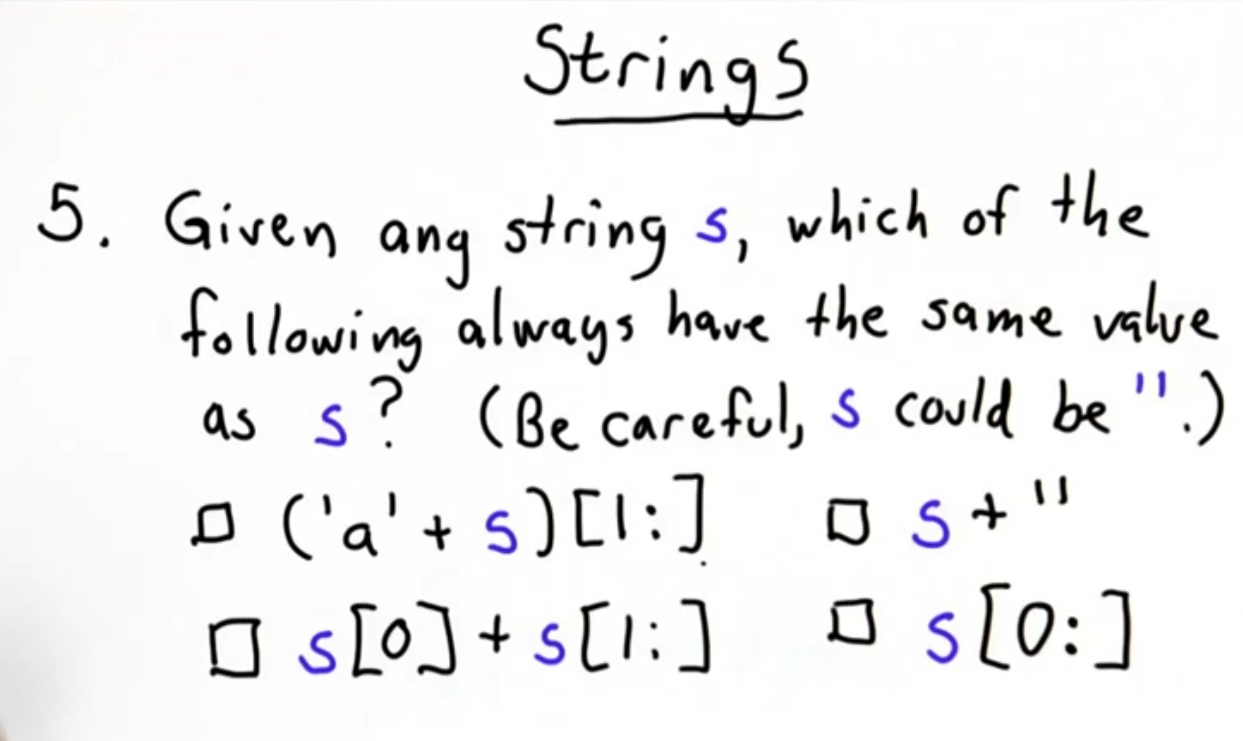 Strings
5. Given any string s, which of the
following always have the same value
as s? (Be careful, s could be ''.)
□ ('a' + s)[1:] □ s + ''
□ s[0] + s[1:] □ s[0:]